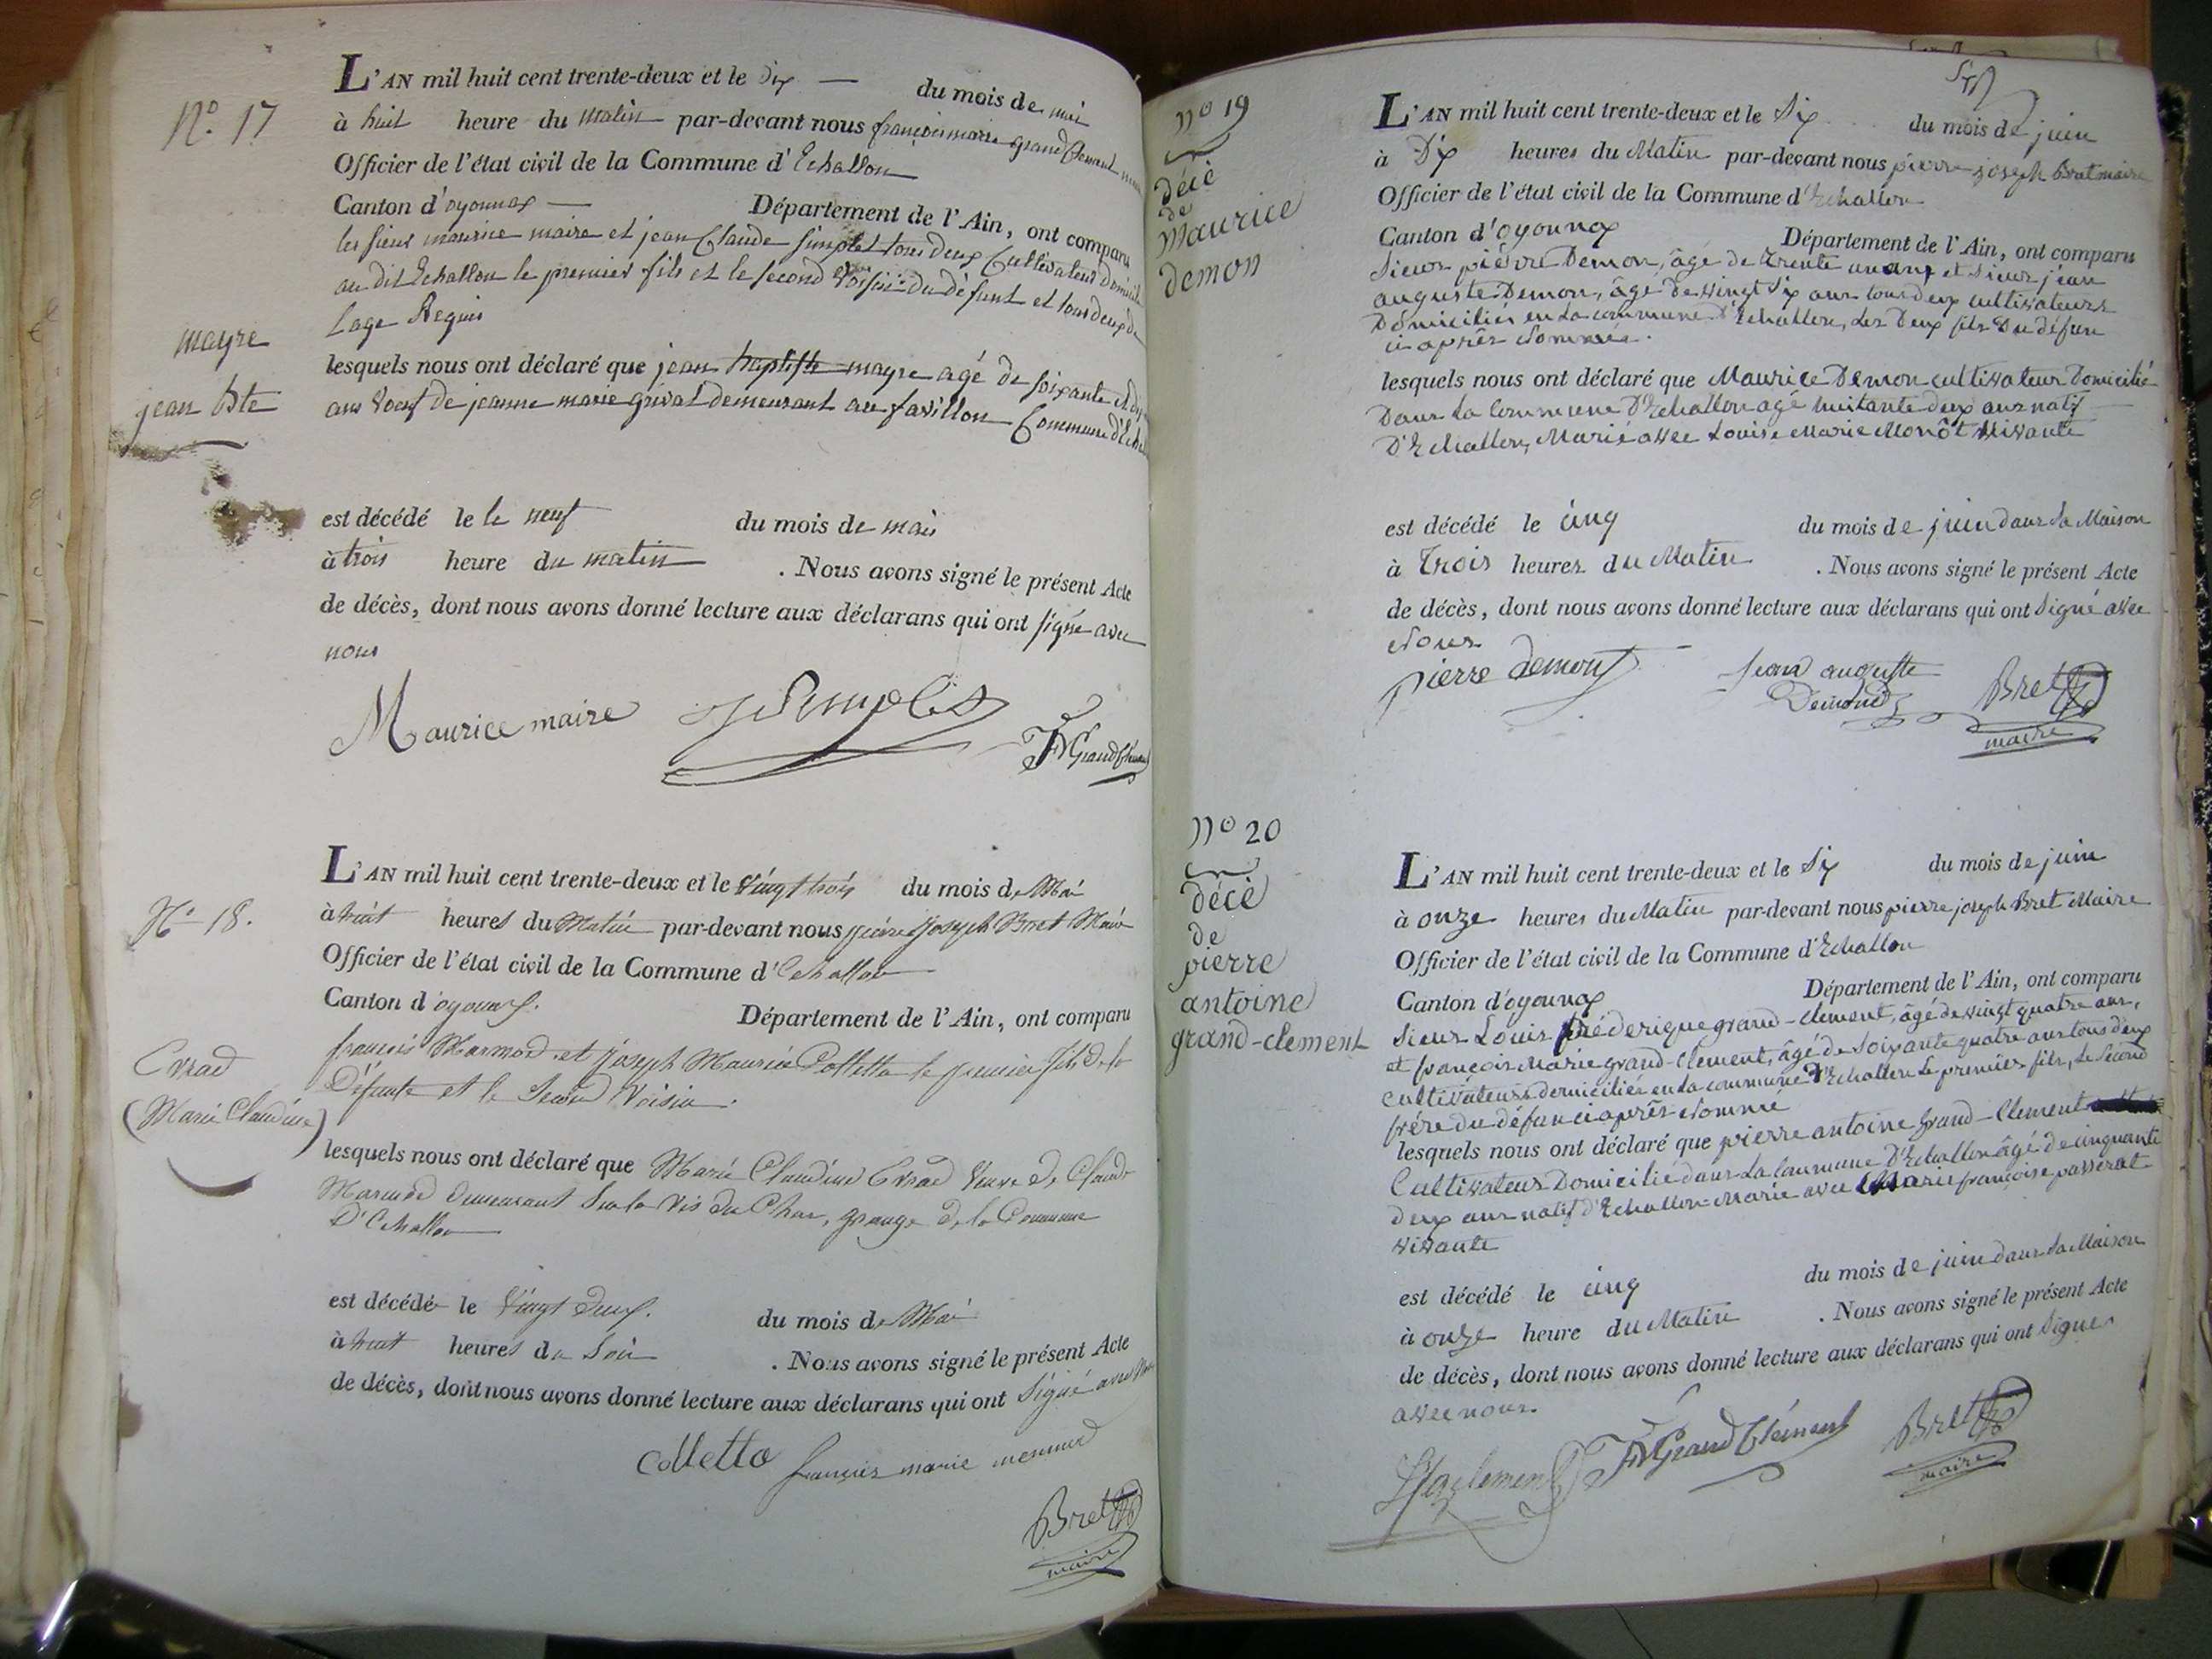 N.º 17
L'AN mil huit cent trente-deux et le dix — du mois de mai
à huit heure du matin par-devant nous françois marie grand Clement
Officier de l'état civil de la Commune d'Echallon
Canton d'oyonnax — Département de l'Ain, ont comparu
les sieur maurice maire et jean Claude simplet tous deux Cultivateur
au dit Echallon le premier fils et le second voisin du défunt et tous deux de
Lage Requis
mayre
jean Bte
lesquels nous ont déclaré que jean baptiste mayre agé de soixante et
ans voeuf de jeanne marie grivat demeurant au favillon Commune
est décédé le le neuf du mois de mais
à trois heure du matin . Nous avons signé le présent Acte
de décès, dont nous avons donné lecture aux déclarans qui ont signé avec
nous
Maurice maire
JC Grand Clement
N.º 18.
L'AN mil huit cent trente-deux et le vingt trois du mois de Mai
à huit heures du Matin par-devant nous pierre joseph Bret Maire
Officier de l'état civil de la Commune d'Echallon
Canton d'oyonnax. Département de l'Ain, ont comparu
Evrad
(Marie Claudine)
françois Marmod et joseph Maurice Colletta le premier fils de la
Défunte et le Second Voisin.
lesquels nous ont déclaré que Marie Claudine Evrad Veuve de Claude
Marmod demeurant Sur la Vis du Char, grange de la Commune
D'Echallon
est décédé le Vingt deux. du mois de Mai
à huit heures du Soir . Nous avons signé le présent Acte
de décès, dont nous avons donné lecture aux déclarans qui ont Signé avec Nous
Colletta françois marie
Bret
maire
nº 19
décè
de
Maurice
demon
L'AN mil huit cent trente-deux et le Six du mois de juin
à Dix heures du Matin par-devant nous pierre joseph Bret maire
Officier de l'état civil de la Commune d'Echallon
Canton d'oyonnax Département de l'Ain, ont comparu
Sieurs pierre Demon, âgé de trente un ans et Sieur jean
auguste Demon, âgé de vingt Six ans tous deux cultivateurs
Domiciliés en la commune D'Echallon, Les Deux fils Du défun
ci après Nommé.
lesquels nous ont déclaré que Maurice Demon cultivateur Domicilié
Dans La Commune D'Echallon agé huitante deux ans natif
D'Echallon, Marié avec Louise Marie Monôt Vivante
est décédé le cinq du mois de juin dans la Maison
à Trois heures du Matin . Nous avons signé le présent Acte
de décès, dont nous avons donné lecture aux déclarans qui ont Signé avec
Nous
pierre demon jean auguste
Demond
Bret
maire
nº 20
décè
de
pierre
antoine
grand-clement
L'AN mil huit cent trente-deux et le Six du mois de juin
à onze heures du Matin par-devant nous pierre joseph Bret Maire
Officier de l'état civil de la Commune d'Echallon
Canton d'oyonnax Département de l'Ain, ont comparu
Sieurs Louis fréderique grand-clement, âgé de vingt quatre ans,
et françois Marie grand-Clement, âgé de Soixante quatre ans tous deux
cultivateurs domiciliés en la commune D'Echallon Le premier fils, Le Second
frère du défun ci après Nommé
lesquels nous ont déclaré que pierre antoine grand-Clement
Cultivateur Domicilié dans La Commune D'Echallon âgé de cinquante
deux ans natif d'Echallon Marié avec Marie françoise passerat
vivante
est décédé le cinq du mois de juin dans la Maison
à onze heure du Matin . Nous avons signé le présent Acte
de décès, dont nous avons donné lecture aux déclarans qui ont Signés
avec nous.
FM Grand Clément
Bret
maire